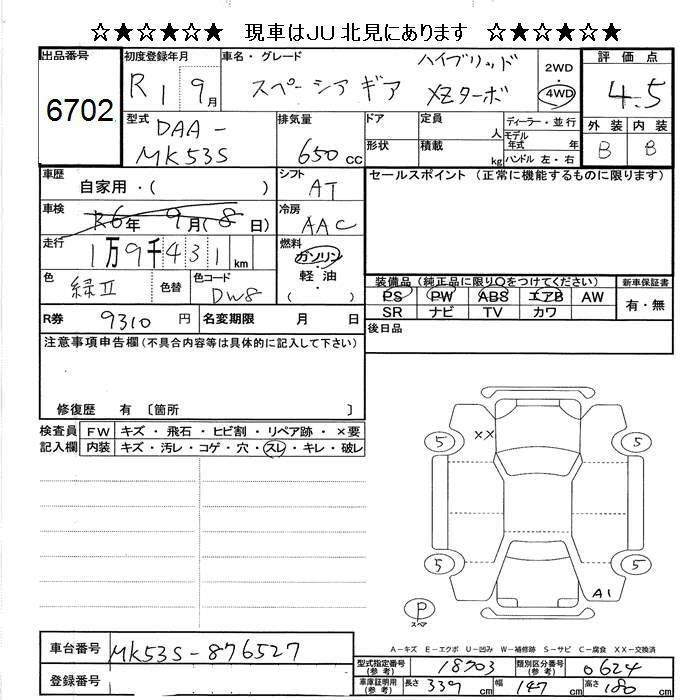 ☆★☆★☆★ 現車はJU北見にあります ☆★☆★☆★
出品番号 初度登録年月 車名・グレード ハイブリッド 2WD 評価点
6702 R1 9月 スペーシアギア XZターボ 4WD 4.5
型式 排気量 ドア 定員 人 ディーラー・並行 外装 内装
DAA-MK53S 650cc 形状 積載 kg モデル年式 年 ハンドル 左・右 B B
車歴 自家用・( ) シフト AT セールスポイント (正常に機能するものに限ります)
車検 R6年 9月(8日) 冷房 AAC
走行 1万9千431km 燃料 ガソリン・軽油・( )
色 緑II 色替 色コード DW8
装備品 (純正品に限り○をつけてください) 新車保証書
PS PW ABS エアB AW 有・無
SR ナビ TV カワ
R券 9310円 名変期限 月 日 後日品
注意事項申告欄(不具合内容等は具体的に記入して下さい)
修復歴 有 〔箇所 〕
検査員 FW キズ・飛石・ヒビ割・リペア跡・×要
記入欄 内装 キズ・汚レ・コゲ・穴・スレ・キレ・破レ
XX
5 5
5 5
A1
P
スペア
A-キズ E-エクボ U-凹み W-補修跡 S-サビ C-腐食 XX-交換済
車台番号 MK53S-876527
型式指定番号(参考) 18703 類別区分番号(参考) 0624
登録番号
車庫証明用(参考) 長さ 339cm 幅 147cm 高さ 180cm